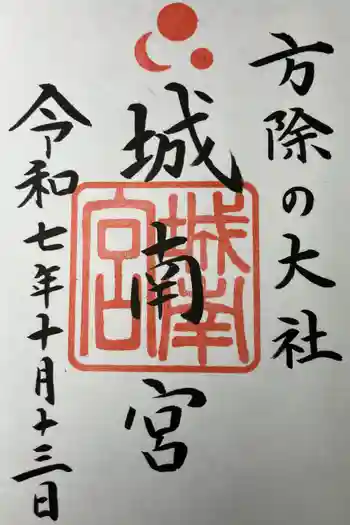 方除の大社
城南宮
城南宮
令和七年十月十三日